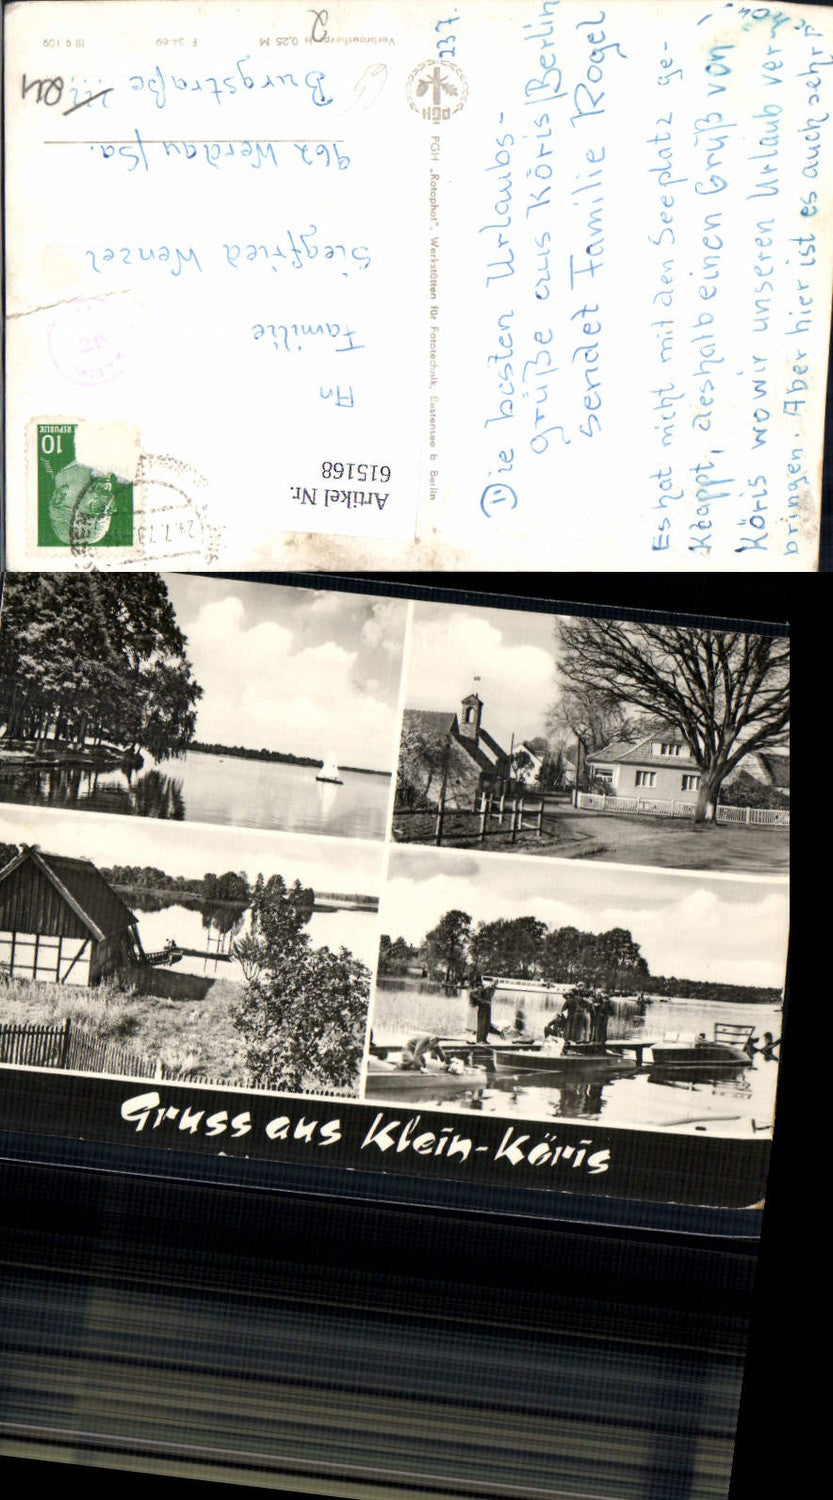 Die besten Urlaubs-
grüße aus Köris/Berlin
sendet Familie Rogel
Es hat nicht mit den Seeplatz ge-
klappt, deshalb einen Gruß von
Köris wo wir unseren Urlaub ver
bringen. Aber hier ist es auch sehr
23.7.
PGH „Rotophot", Werkstätten für Fototechnik, Bestensee b. Berlin
Verbraucherpreis 0,25 M F 34-69 III 9 109
2
An
Familie
Siegfried Wenzel
962 Werdau/Sa.
Burgstraße
24
10
REPUBLIK
Artikel Nr.
615168
Gruss aus Klein-Köris